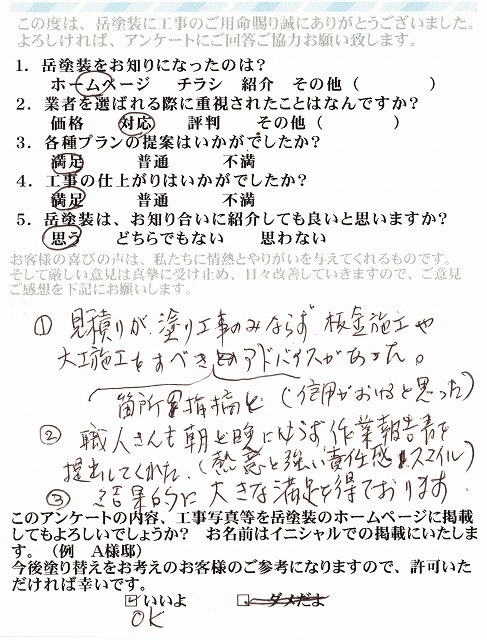 この度は、岳塗装に工事のご用命賜り誠にありがとうございました。
よろしければ、アンケートにご回答ご協力お願い致します。
1. 岳塗装をお知りになったのは?
ホームページ チラシ 紹介 その他 ( )
2. 業者を選ばれる際に重視されたことはなんですか?
価格 対応 評判 その他 ( )
3. 各種プランの提案はいかがでしたか?
満足 普通 不満
4. 工事の仕上がりはいかがでしたか?
満足 普通 不満
5. 岳塗装は、お知り合いに紹介しても良いと思いますか?
思う どちらでもない 思わない
お客様の喜びの声は、私たちに情熱とやりがいを与えてくれるものです。
そして厳しい意見は真摯に受け止め、日々改善していきますので、ご意見
ご感想を下記にお願いします。
① 見積りが、塗り工事のみならず 板金施工や
大工施工をすべき とのアドバイスがあった。
箇所 指摘と (信用がおけると思った)
② 職人さんも朝と晩にかならず作業報告書を
提出してくれた。(熱意と強い責任感 スマイル)
③ 結果的に大きな満足を得ております
このアンケートの内容、工事写真等を岳塗装のホームページに掲載
してもよろしいでしょうか? お名前はイニシャルでの掲載にいたしま
す。(例 A様邸)
今後塗り替えをお考えのお客様のご参考になりますので、許可いた
だければ幸いです。
いいよ ダメだよ
OK